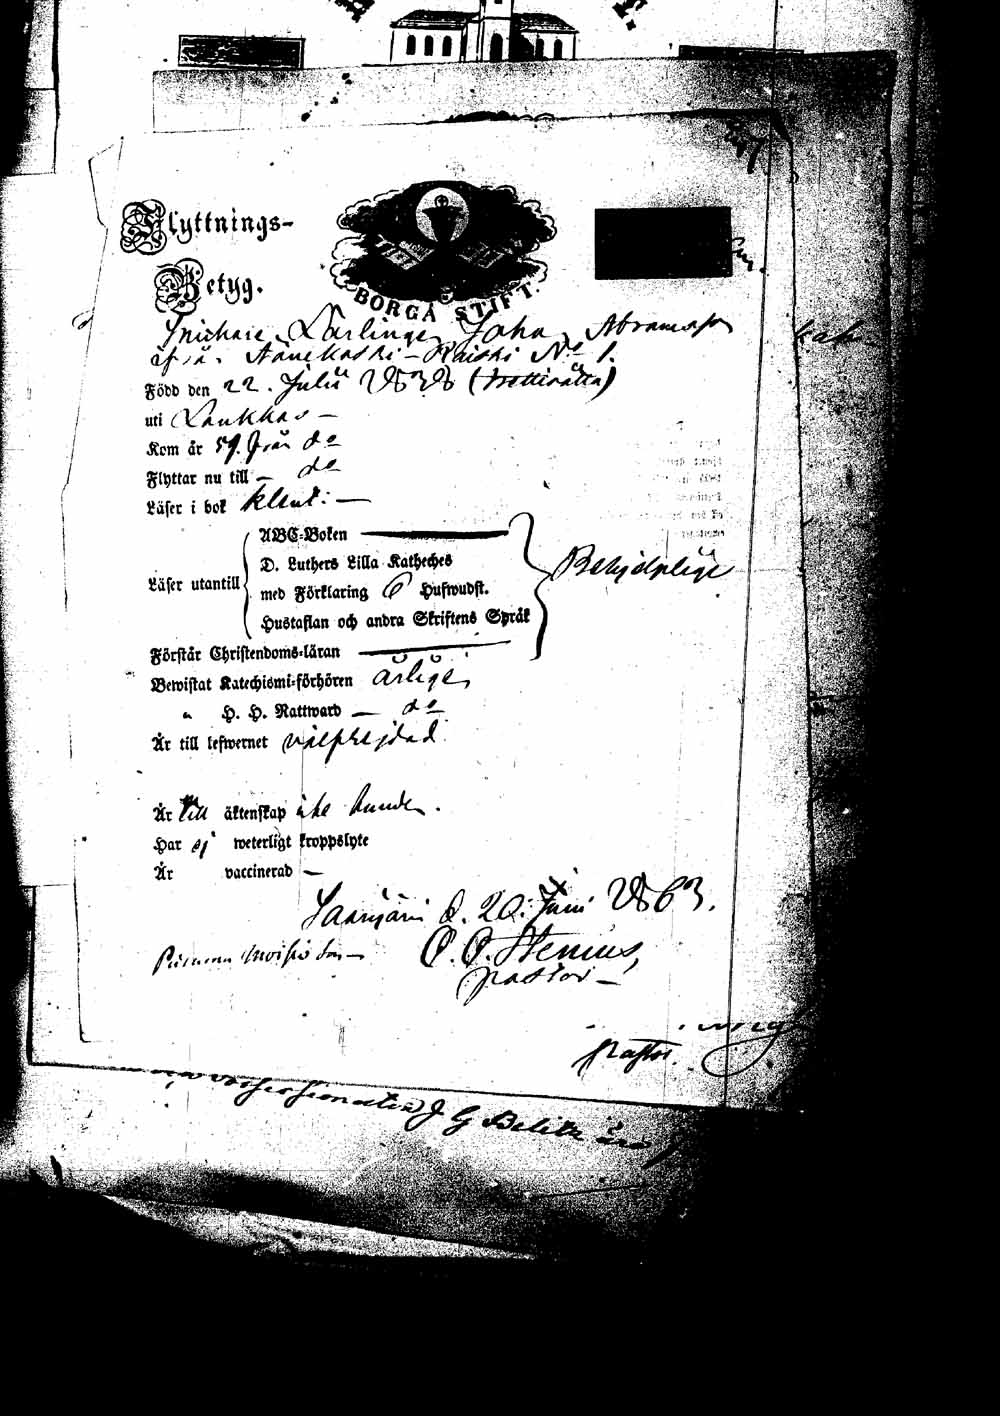 Flyttnings-
Betyg.
BORGÅ STIFT.
Snickare Lärlingen Johan Abramsson
Äänekoski - Koiski No 1.
Född den 22. Julii 1838 (trettiåtta)
uti Laukkas -
Kom år 59. från do
Flyttar nu till - do
Läser i bok klent. -
Läser utantill
ABC-Boken
D. Luthers Lilla Katheches
med Förklaring 6 Hufwudst.
Hustaflan och andra Skriftens Språk
Behjelpligt
Förstår Christendoms-läran
Bewistat Katechismi-förhören årligen
" H. H. Nattward - do
Är till lefwernet välfrejdad
Är till äktenskap icke bunden.
Har ej weterligt kroppslyte
Är vaccinerad -
Saarijärvi d. 20. Juni 1863.
O. O. Stenius,
pastor -
Pastor.
J G Belitz äro